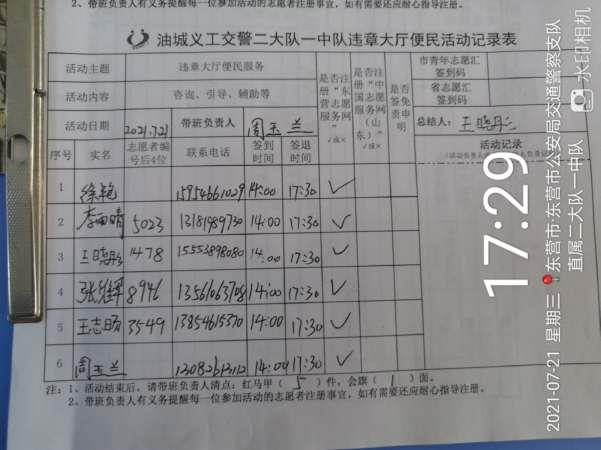 2、带班负责人有义务提醒每一位参加活动的志愿者注册事宜，如有需要还应耐心指导注册。
油城义工交警二大队一中队违章大厅便民活动记录表
活动主题 违章大厅便民服务 是否注册“东营志愿服务网” √或× 是否注册“中国志愿服务网（山东）” √或× 是否签免责申明 市青年志愿汇签到码
活动内容 咨询、引导、辅助等 省志愿汇签到码
活动日期 2021.7.21 带班负责人 周玉兰 总结人：王晓彤
序号 实名 志愿者编号后4位 联系电话 签到时间 签退时间 活动记录
1 徐艳 15954661029 14:00 17:30 ✓
2 李雨晴 5023 13181989730 14:00 17:30 ✓
3 王晓彤 1478 15553898080 14:00 17:30 ✓
4 8946 13561063708 14:00 17:30 ✓
5 王志明 3549 13854615370 14:00 17:30 ✓
6 周玉兰 14:00 17:30 ✓
注：1、活动结束后，请带班负责人清点：红马甲（5）件，会旗（1）面。
2、带班负责人有义务提醒每一位参加活动的志愿者注册事宜，如有需要还应耐心指导注册。
17:29
2021-07-21 星期三 东营市·东营市公安局交通警察支队
直属二大队一中队
水印相机